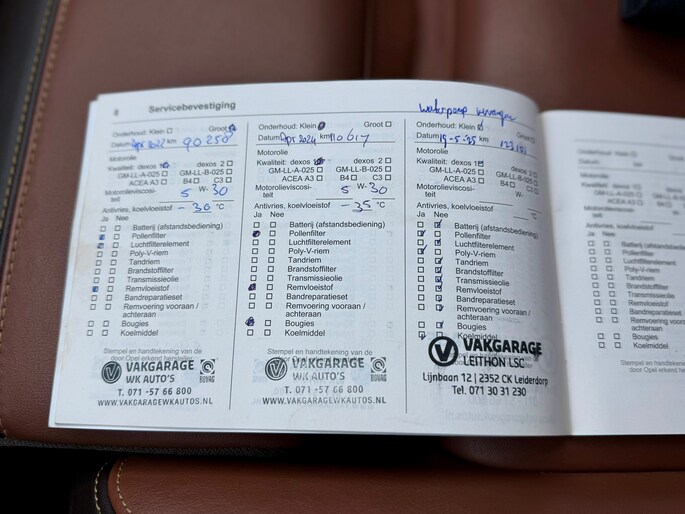 8 Servicebevestiging
Onderhoud: Klein Groot
Datum Apr 2022 km 90 250
Motorolie
Kwaliteit: dexos 1 dexos 2
GM-LL-A-025 GM-LL-B-025
ACEA A3 B4 C3
Motorolieviscosi-
teit 5 W- 30
Antivries, koelvloeistof - 36 °C
Ja Nee
Batterij (afstandsbediening)
Pollenfilter
Luchtfilterelement
Poly-V-riem
Tandriem
Brandstoffilter
Transmissieolie
Remvloeistof
Bandreparatieset
Remvoering vooraan /
achteraan
Bougies
Koelmiddel
Stempel en handtekening van de
door Opel erkend hersteller
VAKGARAGE
WK AUTO'S
BOVAG
T. 071 -57 66 800
WWW.VAKGARAGEWKAUTOS.NL
Onderhoud: Klein Groot
Datum Apr 2024 km 110 617
Motorolie
Kwaliteit: dexos 1 dexos 2
GM-LL-A-025 GM-LL-B-025
ACEA A3 B4 C3
Motorolieviscosi-
teit 5 W- 30
Antivries, koelvloeistof - 35 °C
Ja Nee
Batterij (afstandsbediening)
Pollenfilter
Luchtfilterelement
Poly-V-riem
Tandriem
Brandstoffilter
Transmissieolie
Remvloeistof
Bandreparatieset
Remvoering vooraan /
achteraan
Bougies
Koelmiddel
Stempel en handtekening van de
VAKGARAGE
WK AUTO'S
BOVAG
T. 071 -57 66 800
WWW.VAKGARAGEWKAUTOS.NL
Waterpomp
Onderhoud: Klein Groot
Datum 19-5-'25 km
Motorolie
Kwaliteit: dexos 1 dexos 2
GM-LL-A-025 GM-LL-B-025
ACEA A3 B4 C3
Motorolieviscosi- W-
teit
Antivries, koelvloeistof °C
Ja Nee
Batterij (afstandsbediening)
Pollenfilter
Luchtfilterelement
Poly-V-riem
Tandriem
Brandstoffilter
Transmissieolie
Remvloeistof
Bandreparatieset
Remvoering vooraan /
achteraan
Bougies
Koelmiddel
VAKGARAGE
LEITHON LSC
Lijnbaan 12 | 2352 CK Leiderdorp
Tel. 071 30 31 230
Onderhoud: Klein
Datum
Motorolie
Kwaliteit: dexos 1
GM-LL-A-025
ACEA A3
Motorolieviscosi-
teit
Antivries, koelvloeistof
Ja Nee
Batterij (afstandsbediening)
Pollenfilter
Luchtfilterelement
Poly-V-riem
Tandriem
Brandstoffilter
Transmissieolie
Remvloeistof
Bandreparatieset
Remvoering vooraan /
achteraan
Bougies
Koelmiddel